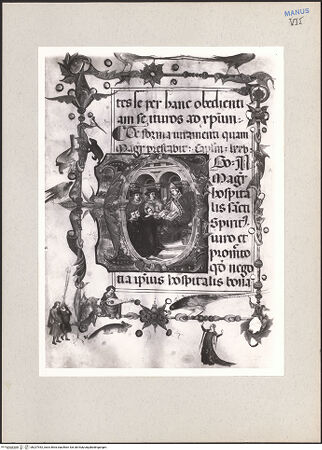 MANUS
VII
tes se per hanc obedienti
am se ituros ad xpium:
De forma iuramenti quam
Magr prestabit: Caplm
Go: N
Magr
hospita
lis sancti
Spirit9
iuro et
promito
qd nego
tia ipius hospitalis bona